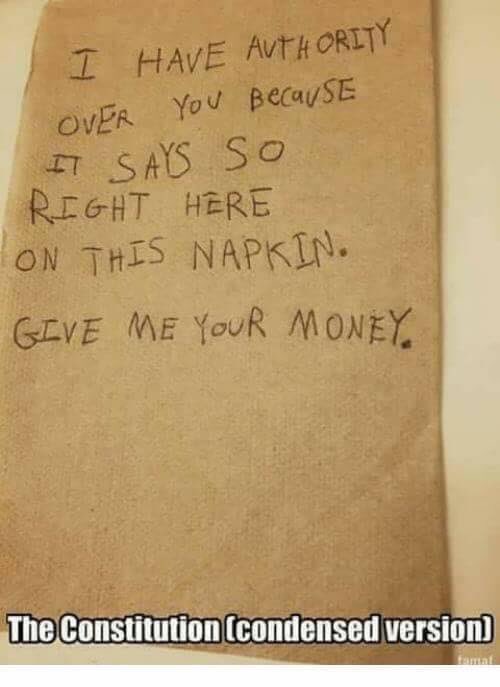 I HAVE AUTHORITY
OVER YOU BECAUSE
IT SAYS SO
RIGHT HERE
ON THIS NAPKIN.
GIVE ME YOUR MONEY.
The Constitution (condensed version)